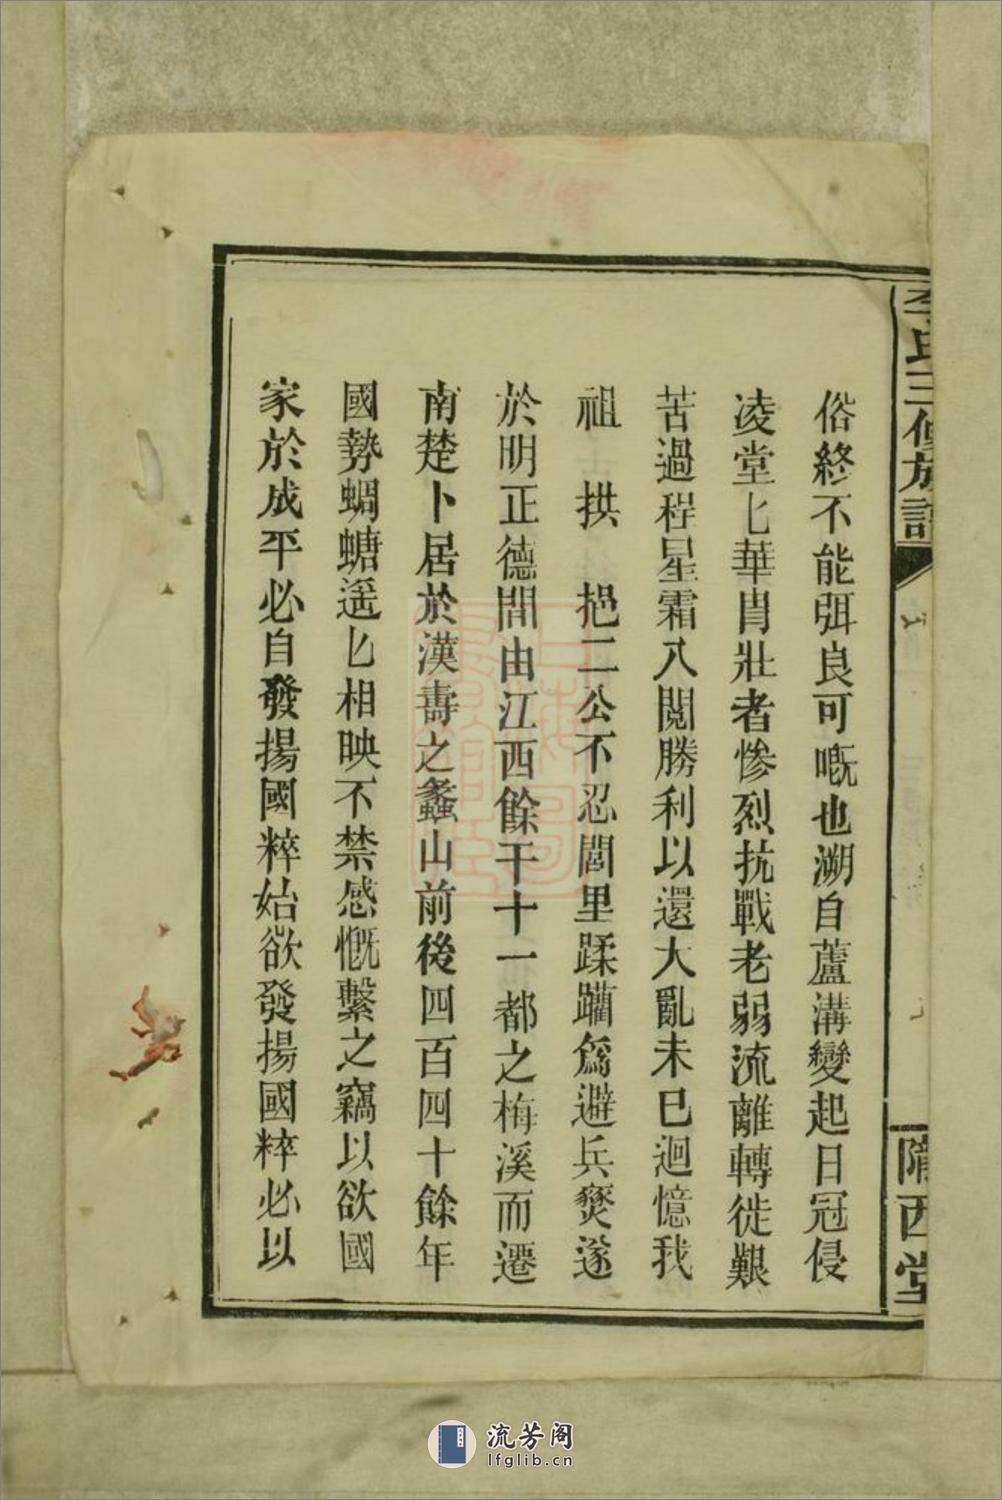 李氏三修族譜
隴西堂
俗終不能弭良可嘅也溯自蘆溝變起日冠侵
凌堂匕華胄壯者慘烈抗戰老弱流離轉徙艱
苦過程星霜八閱勝利以還大亂未已迴憶我
祖 拱 挹二公不忍閭里蹂躪爲避兵燹遂
於明正德間由江西餘干十一都之梅溪而遷
南楚卜居於漢壽之蠡山前後四百四十餘年
國勢蜩螗遥匕相映不禁感慨繫之竊以欲國
家於成平必自發揚國粹始欲發揚國粹必以
流芳阁
lfglib.cn